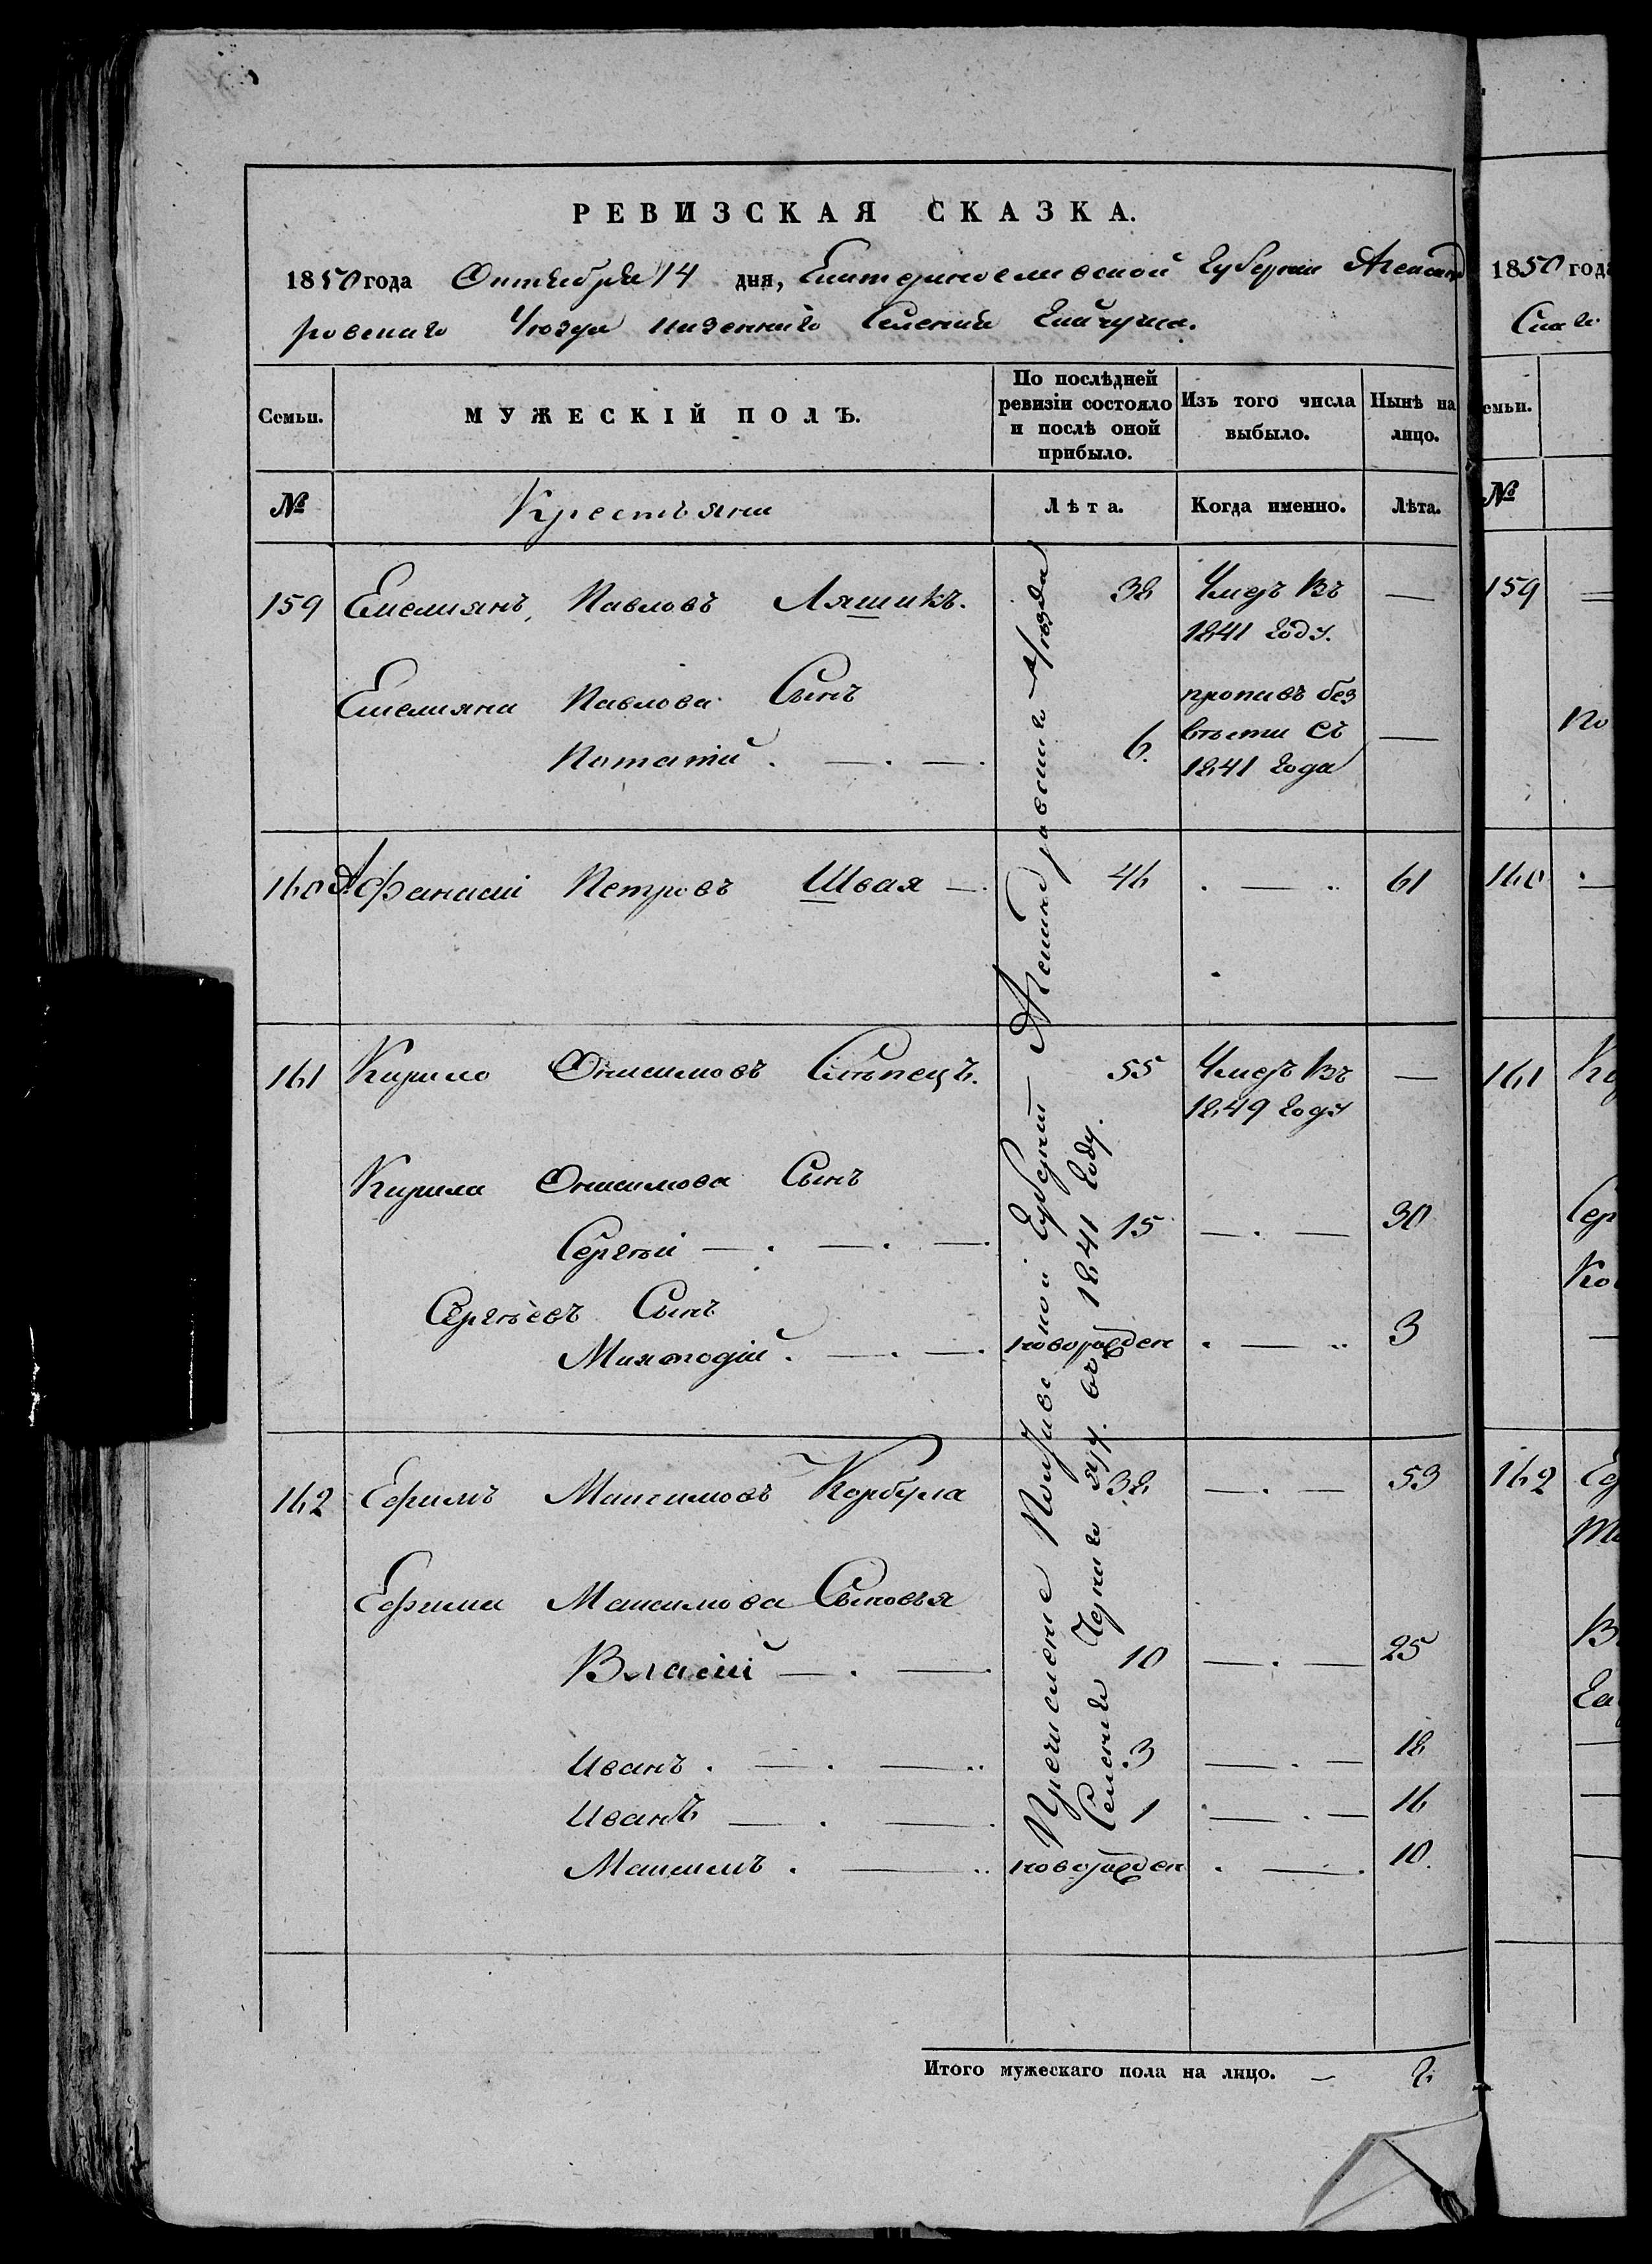 РЕВИЗСКАЯ СКАЗКА.
1850 года Октября 14 дня, Екатеринославской Губерніи Александ
ровскаго Уѣзда казеннаго Селенія Гайчула.
Семьи.
МУЖЕСКІЙ ПОЛЪ.
По послѣдней
ревизіи состояло
и послѣ оной
прибыло.
Изъ того числа
выбыло.
Нынѣ на
лицо.
№ Крестьяни Лѣта. Когда именно. Лѣта.
159 Емелиянъ Павловъ Ляшикъ. 38 Умеръ въ —
1841 году.
Емелияна Павлова Сынъ пропавъ без
Потапій . — . — . 6. вѣсти съ —
1841 года
160 Афанасій Петровъ Швая — . 46 . — .. 61
161 Кирило Онисимовъ Слѣпецъ. 55 Умеръ въ —
1849 году
Кирила Онисимова Сынъ
Сергѣй — . — . — . 15 — . — 30
Сергѣевъ Сынъ
Мифтодій . — . — . новорожден . — .. 3
162 Ефимъ Максимовъ Корбула 38 — . — 53
Ефима Максимова Сыновья
Власій — . — . 10 — . — 25
Иванъ . — . — .. 3 — . — 18
Иванъ — . — . 1 . — . — 16
Максимъ . — .. новорожден . — . 10.
Пречислене Полтавской Губерніи Александровскаго Уѣзда
Селенія въ 1841 году.
Итого мужескаго пола на лицо. — 8.
1850 года
№
159
160
161
162